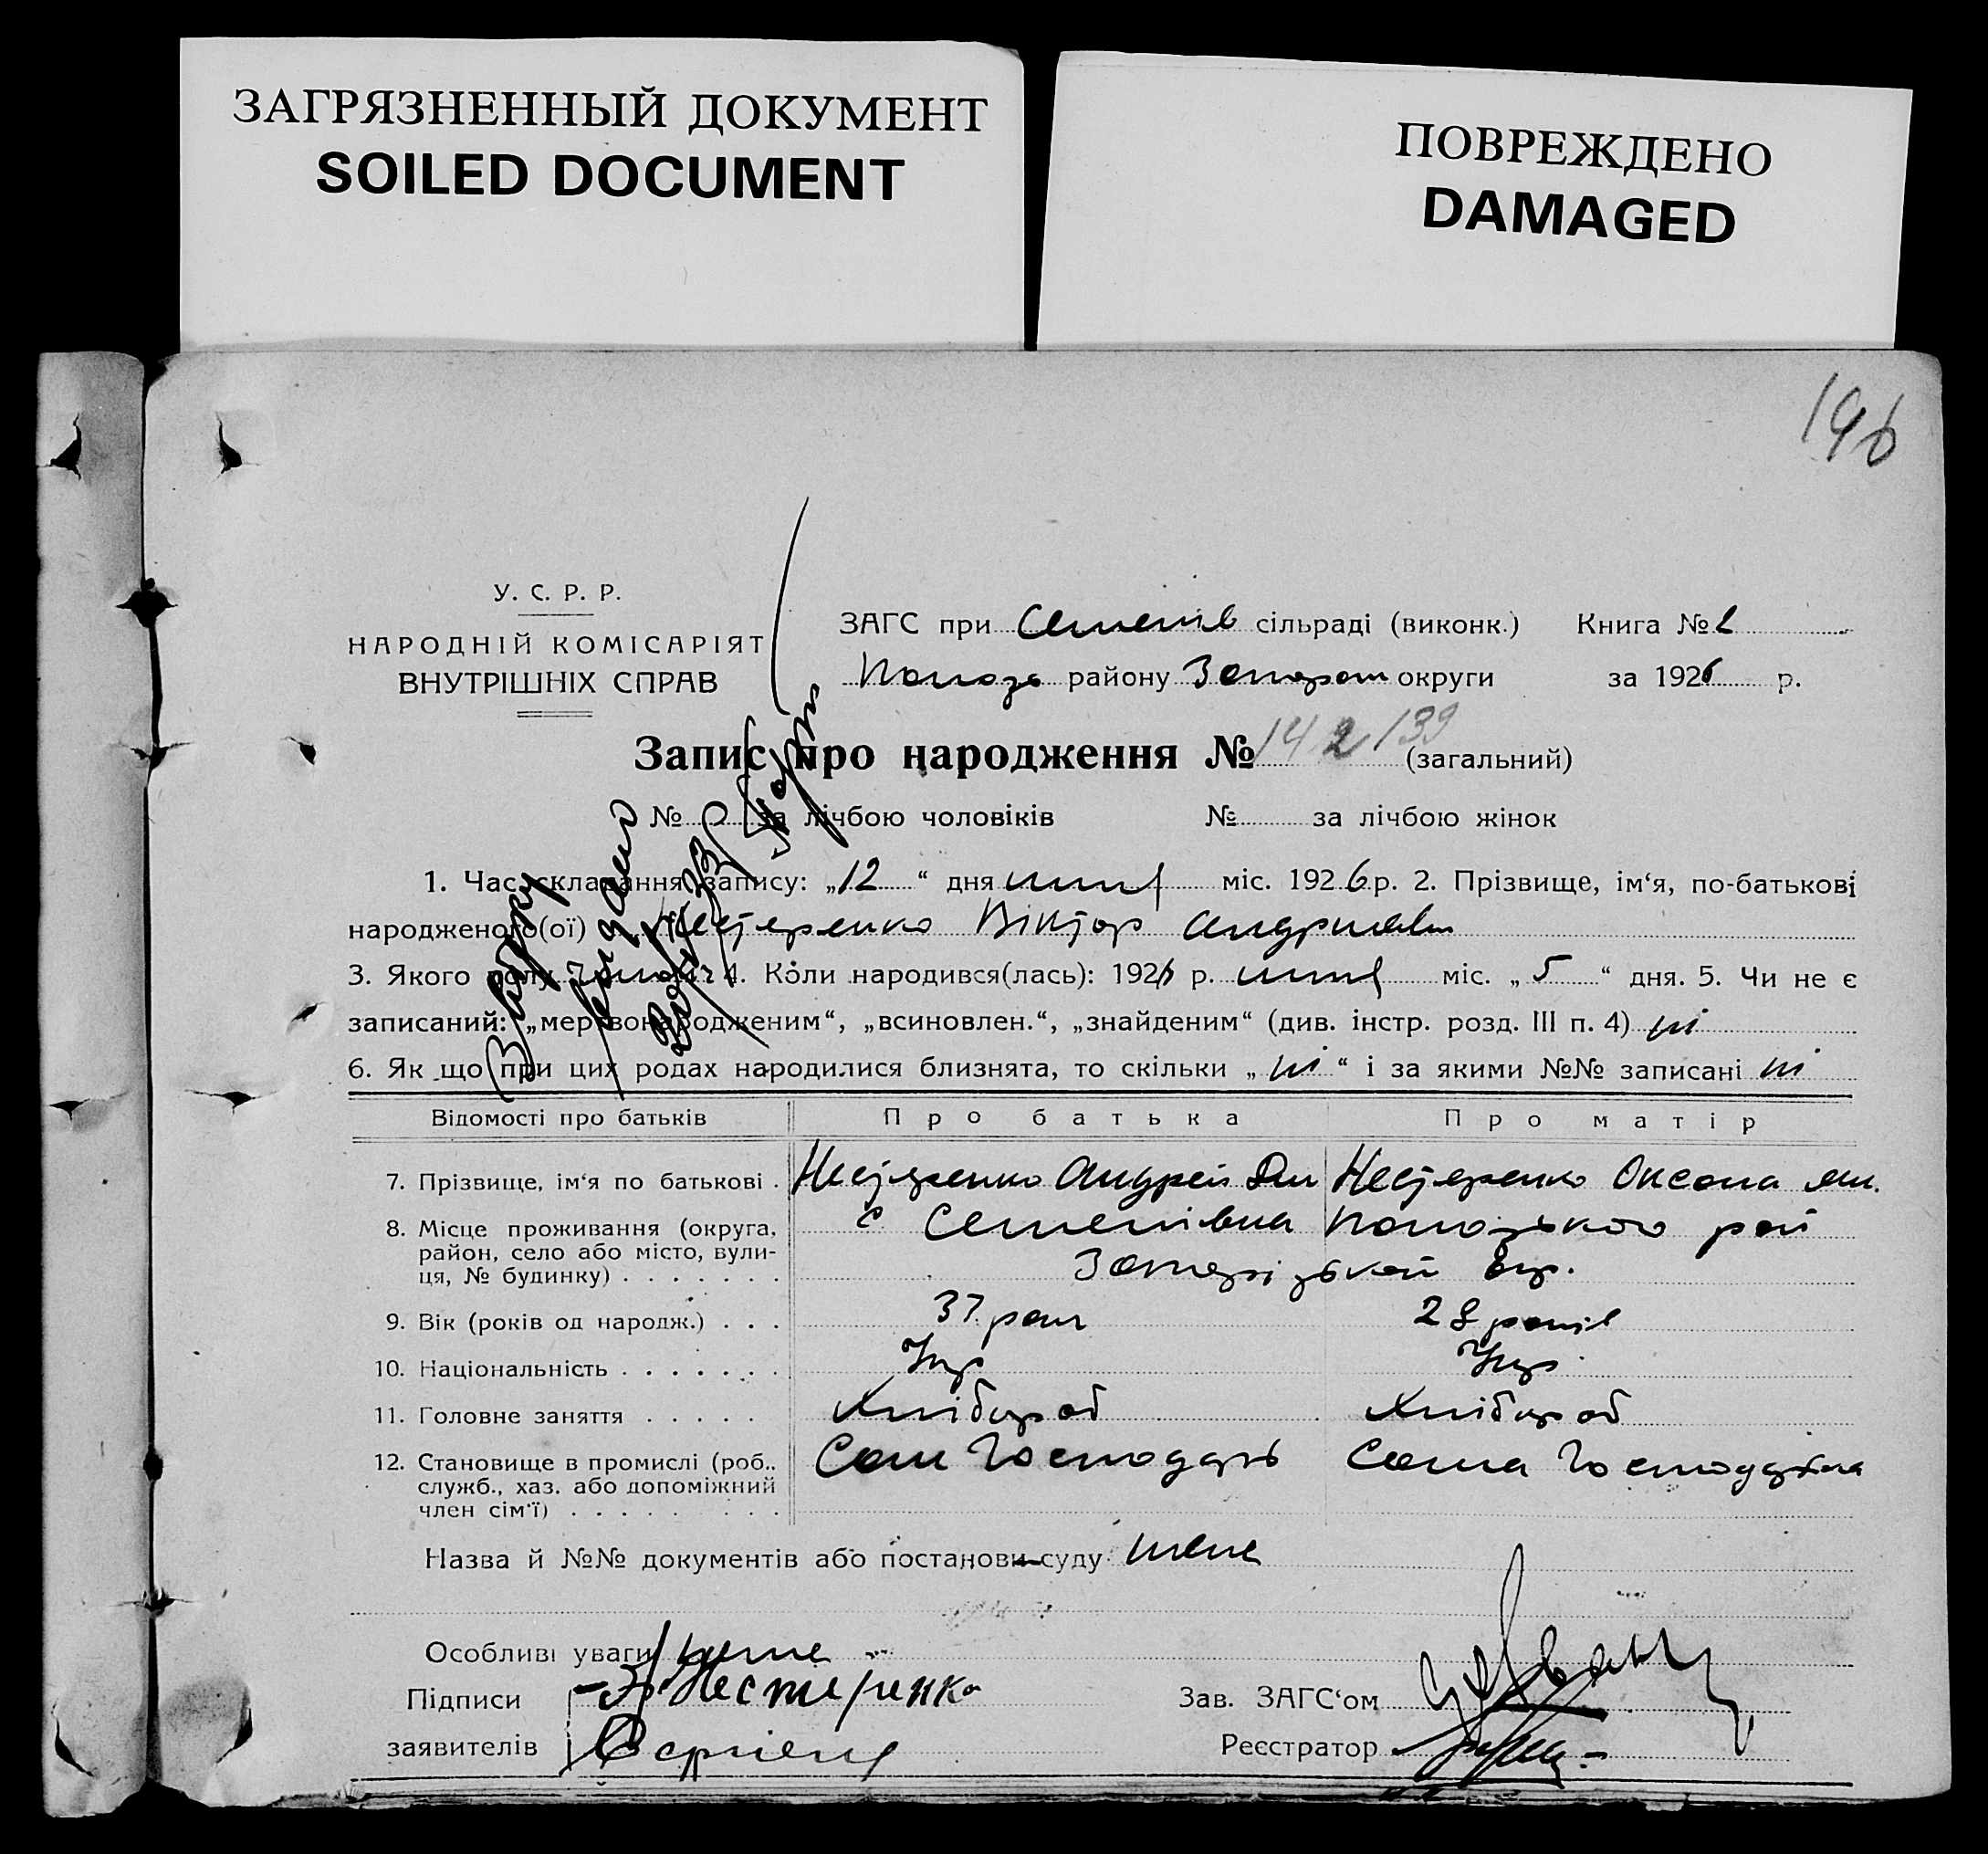 ЗАГРЯЗНЕННЫЙ ДОКУМЕНТ
SOILED DOCUMENT
ПОВРЕЖДЕНО
DAMAGED
196
У. С. Р. Р.
НАРОДНІЙ КОМІСАРІЯТ
ВНУТРІШНІХ СПРАВ
ЗАГС при Семенів сільраді (виконк.) Книга № 2
Полозь району Запорож округи за 1926 р.
Запис про народження № 142 139 (загальний)
№ за лічбою чоловіків № за лічбою жінок
1. Час складання запису: „12“ дня міс. 1926 р. 2. Прізвище, ім‘я, по-батькові
народженого(ої) Нестеренко Віктор
3. Якого полу 4. Коли народився(лась): 1926 р. міс. „5“ дня. 5. Чи не є
записаний: „мертвонародженим“, „всиновлен.“, „знайденим“ (див. інстр. розд. III п. 4) ні
6. Як що при цих родах народилися близнята, то скільки „ні“ і за якими №№ записані ні
Відомості про батьків Про батька Про матір
7. Прізвище, ім‘я по батькові . Нестеренко Андрей Нестеренко Оксана
8. Місце проживання (округа, район, село або місто, вулиця, № будинку) . . . . . . . с Семенівка Пологського рай
Запорізької окр.
9. Вік (років од народж.) . . . 37 рок 28 років
10. Національність . . . . . . . Укр Укр
11. Головне заняття . . . . . Хлібороб Хлібороб
12. Становище в промислі (роб., служб., хаз. або допоміжний член сім‘ї) . . . . . . . . Сам Господарь Сама Господарка
Назва й №№ документів або постанови суду нема
Особливі уваги нема
Підписи Нестеренко Зав. ЗАГС‘ом
заявителів Реєстратор